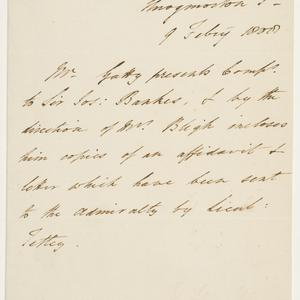 Throgmorton S—
9 Feby 1808
Mr. Gatty presents Compts.
to Sir Jos: Bankes, & by the
direction of Mrs. Bligh incloses
him copies of an affidavit &
letter which have been sent
to the Admiralty by Lieut:
Tettey.